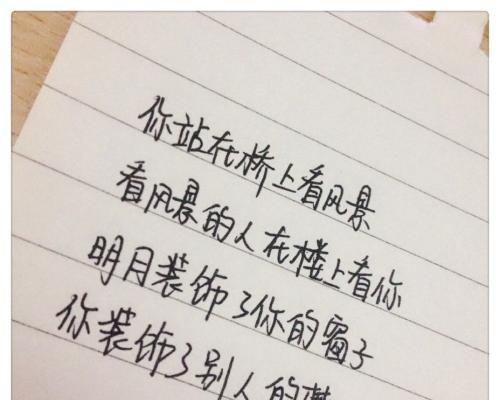 你站在桥上看风景
看风景的人在楼上看你
明月装饰了你的窗子
你装饰了别人的